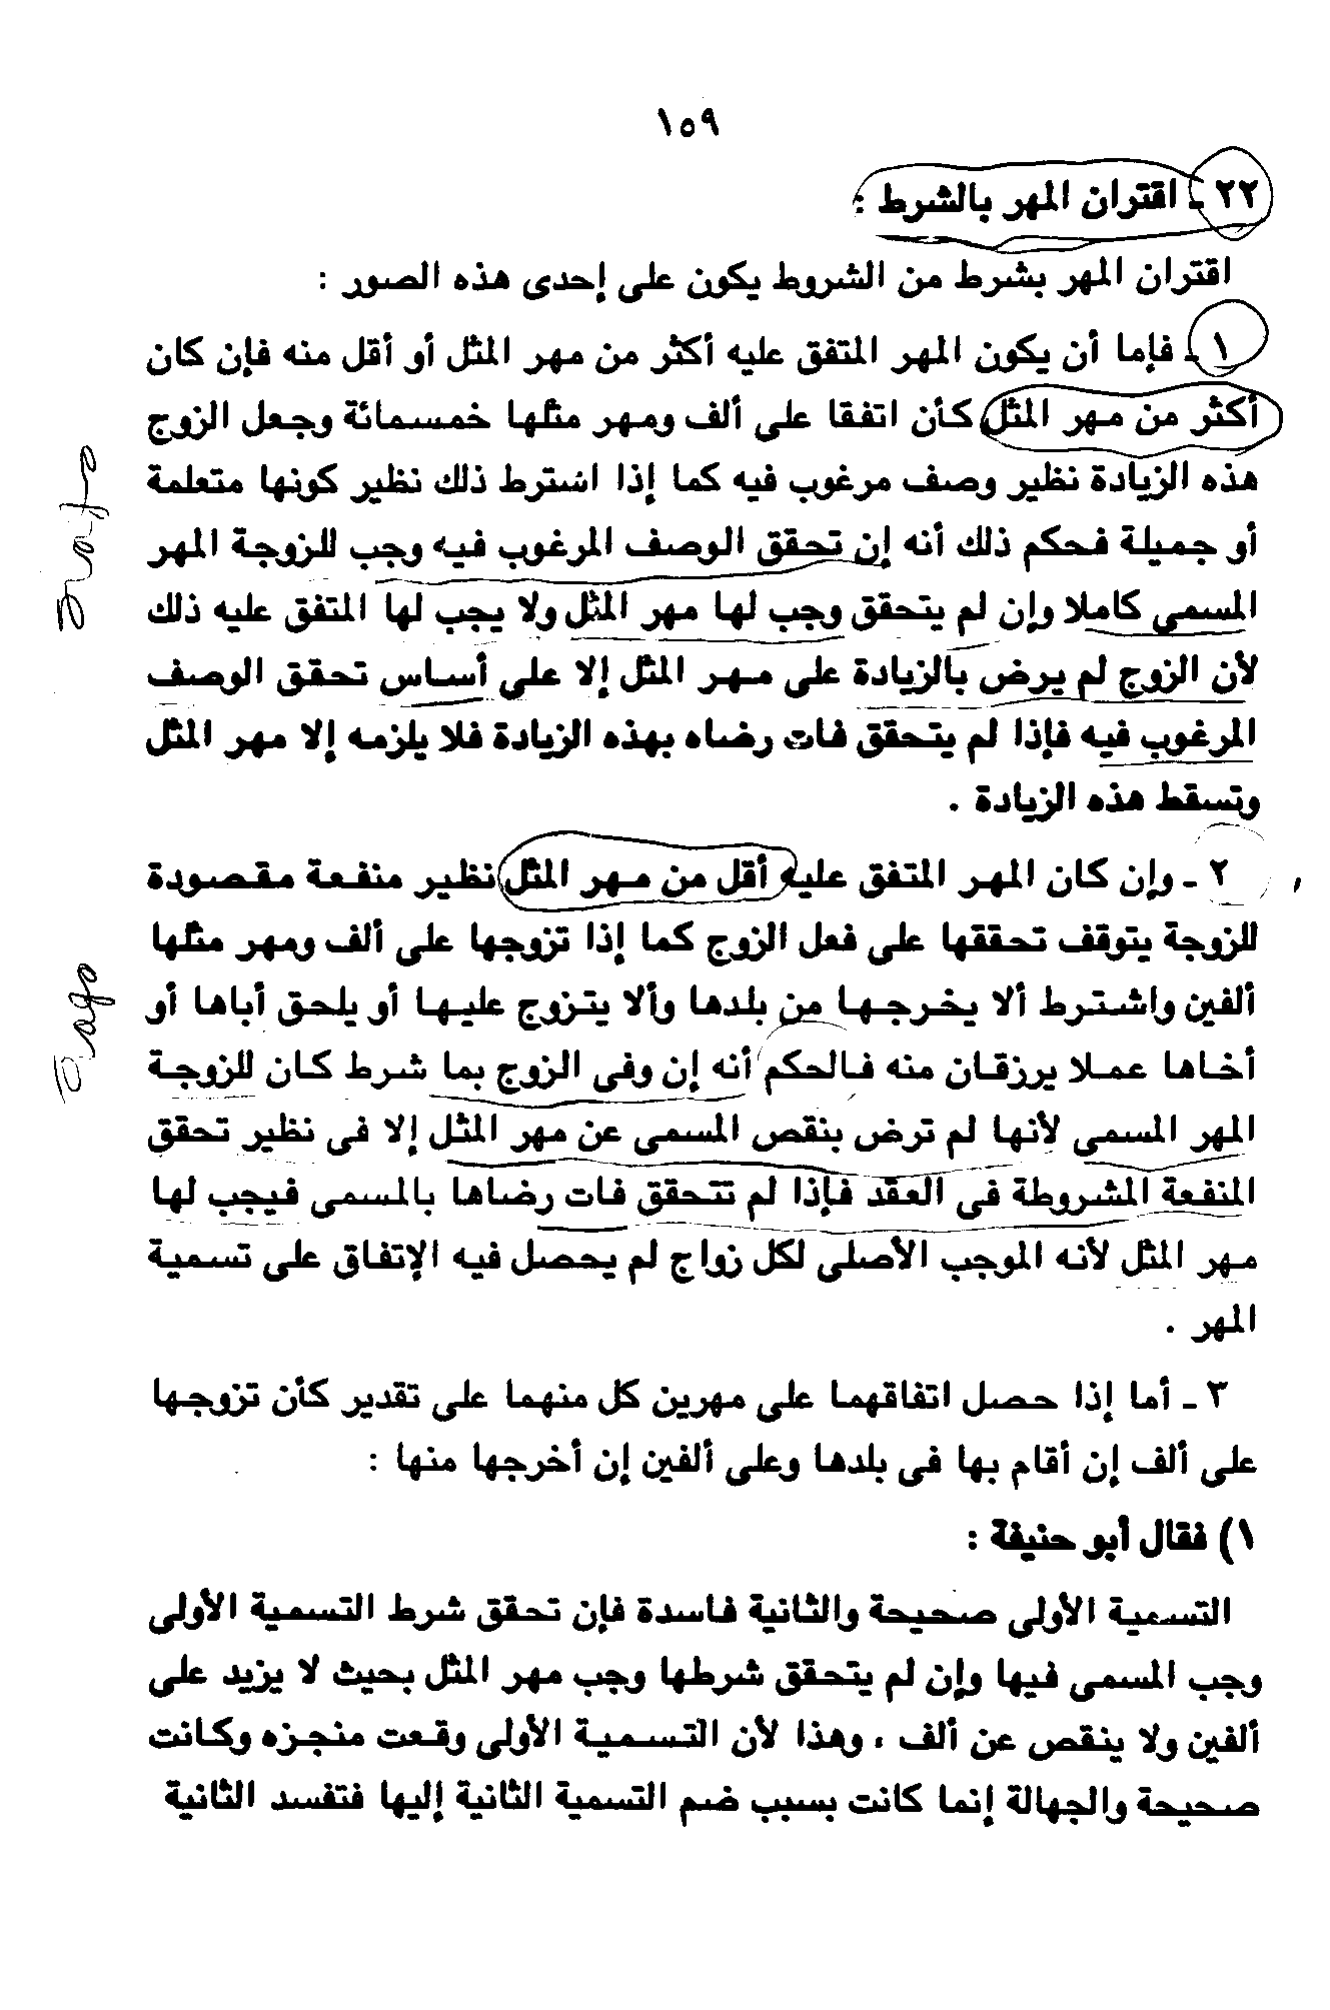 ١٥٩
٢٢ ـ اقتران المهر بالشرط :
اقتران المهر بشرط من الشروط يكون على إحدى هذه الصور :
١ ـ فإما أن يكون المهر المتفق عليه أكثر من مهر المثل أو أقل منه فإن كان
أكثر من مهر المثل كأن اتفقا على ألف ومهر مثلها خمسمائة وجعل الزوج
هذه الزيادة نظير وصف مرغوب فيه كما إذا اشترط ذلك نظير كونها متعلمة
أو جميلة فحكم ذلك أنه إن تحقق الوصف المرغوب فيه وجب للزوجة المهر
المسمى كاملا وإن لم يتحقق وجب لها مهر المثل ولا يجب لها المتفق عليه ذلك
لأن الزوج لم يرض بالزيادة على مهر المثل إلا على أساس تحقق الوصف
المرغوب فيه فإذا لم يتحقق فات رضاه بهذه الزيادة فلا يلزمه إلا مهر المثل
وتسقط هذه الزيادة .
٢ ـ وإن كان المهر المتفق عليه أقل من مهر المثل نظير منفعة مقصودة
للزوجة يتوقف تحققها على فعل الزوج كما إذا تزوجها على ألف ومهر مثلها
ألفين واشترط ألا يخرجها من بلدها وألا يتزوج عليها أو يلحق أباها أو
أخاها عملا يرزقان منه فالحكم أنه إن وفى الزوج بما شرط كان للزوجة
المهر المسمى لأنها لم ترض بنقص المسمى عن مهر المثل إلا فى نظير تحقق
المنفعة المشروطة فى العقد فإذا لم تتحقق فات رضاها بالمسمى فيجب لها
مهر المثل لأنه الموجب الأصلى لكل زواج لم يحصل فيه الإتفاق على تسمية
المهر .
٣ ـ أما إذا حصل اتفاقهما على مهرين كل منهما على تقدير كأن تزوجها
على ألف إن أقام بها فى بلدها وعلى ألفين إن أخرجها منها :
١) فقال أبو حنيفة :
التسمية الأولى صحيحة والثانية فاسدة فإن تحقق شرط التسمية الأولى
وجب المسمى فيها وإن لم يتحقق شرطها وجب مهر المثل بحيث لا يزيد على
ألفين ولا ينقص عن ألف ، وهذا لأن التسمية الأولى وقعت منجزه وكانت
صحيحة والجهالة إنما كانت بسبب ضم التسمية الثانية إليها فتفسد الثانية